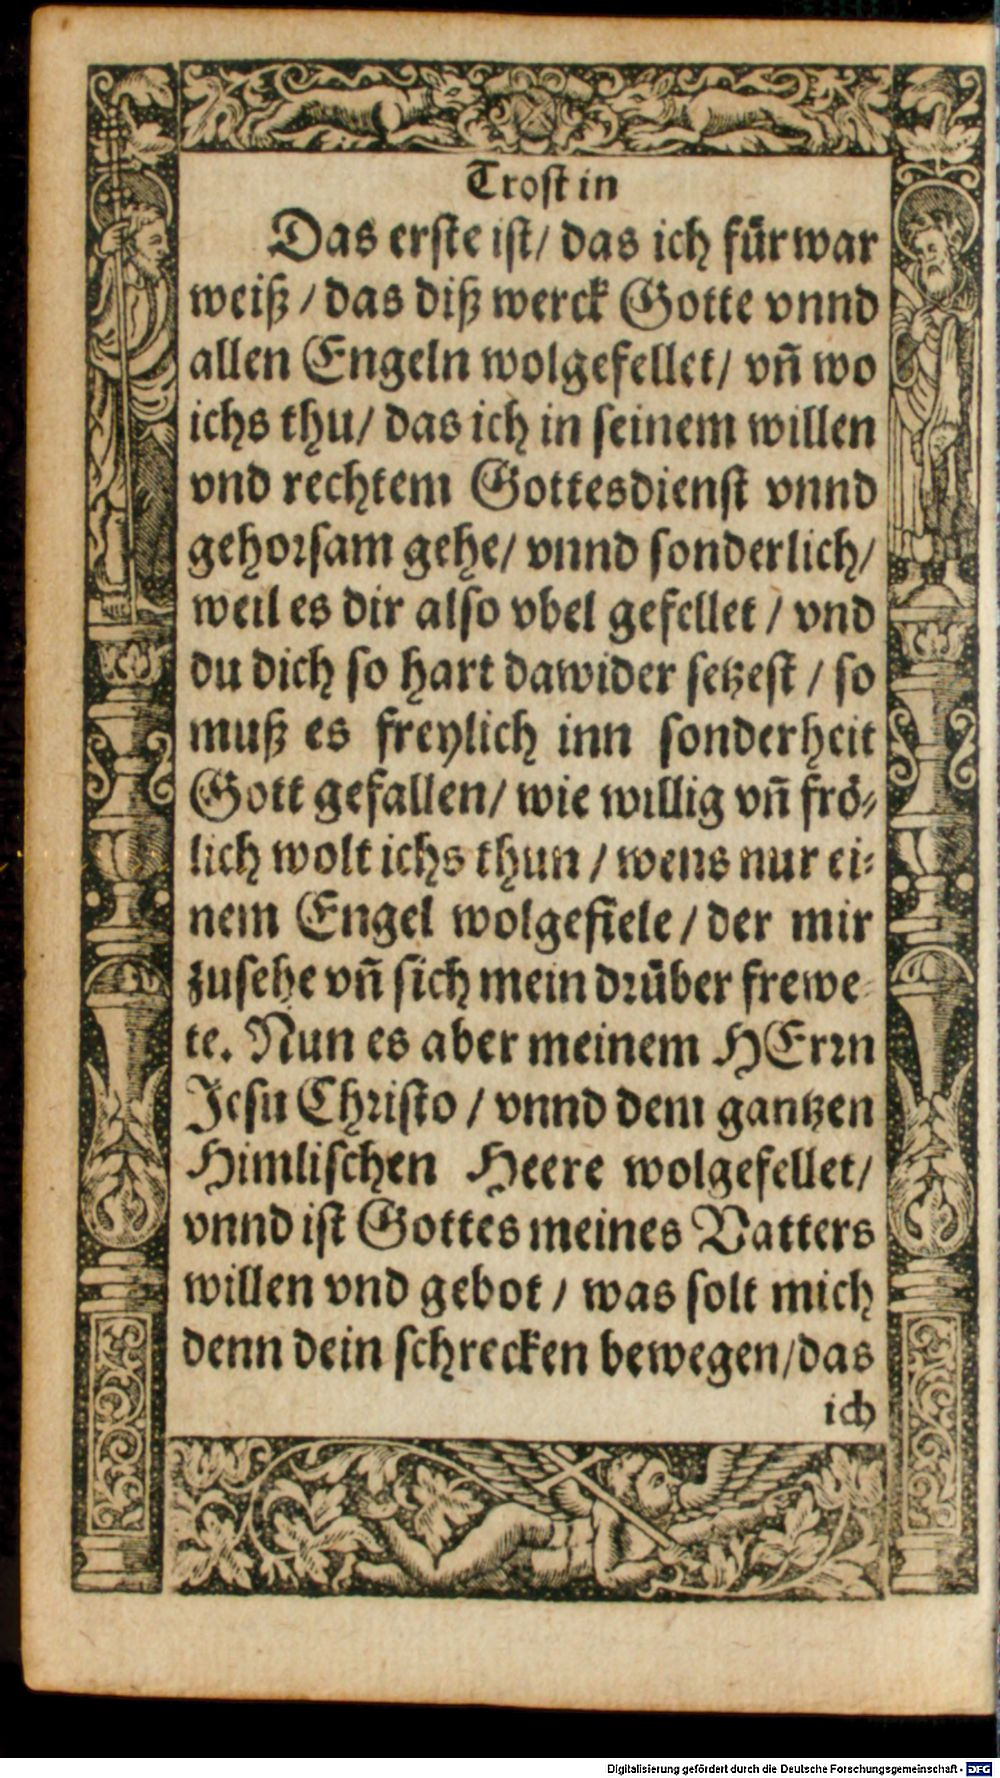 Trost in
Das erste ist/ das ich fürwar
weiß / das diß werck Gotte vnnd
allen Engeln wolgefellet/ vñ wo
ichs thu/ das ich in seinem willen
vnd rechtem Gottesdienst vnnd
gehorsam gehe/ vnnd sonderlich/
weil es dir also vbel gefellet / vnd
du dich so hart dawider setzest / so
muß es freylich inn sonderheit
Gott gefallen/ wie willig vñ frö-
lich wolt ichs thun / wens nur ei-
nem Engel wolgefiele / der mir
zusehe vñ sich mein drüber frewe-
te. Nun es aber meinem HErrn
Jesu Christo / vnnd dem gantzen
Himlischen Heere wolgefellet/
vnnd ist Gottes meines Vatters
willen vnd gebot / was solt mich
denn dein schrecken bewegen/das
ich
Digitalisierung gefördert durch die Deutsche Forschungsgemeinschaft - DFG